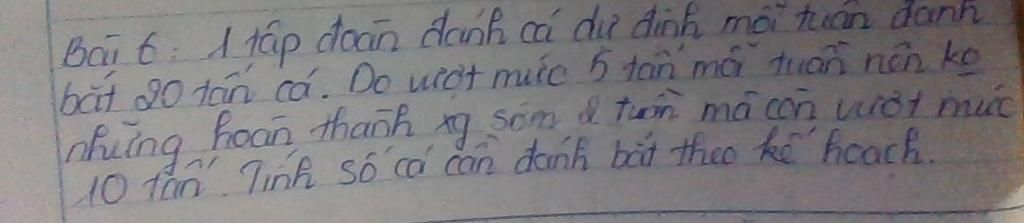 Bài 6: 1 tập đoàn đánh cá dự định mỗi tuần đánh
bắt 20 tấn cá. Do vượt mức 5 tấn mỗi tuần nên ko
những hoàn thành xg sớm 1 tuần mà còn vượt mức
10 tấn. Tính số cá cần đánh bắt theo kế hoạch.